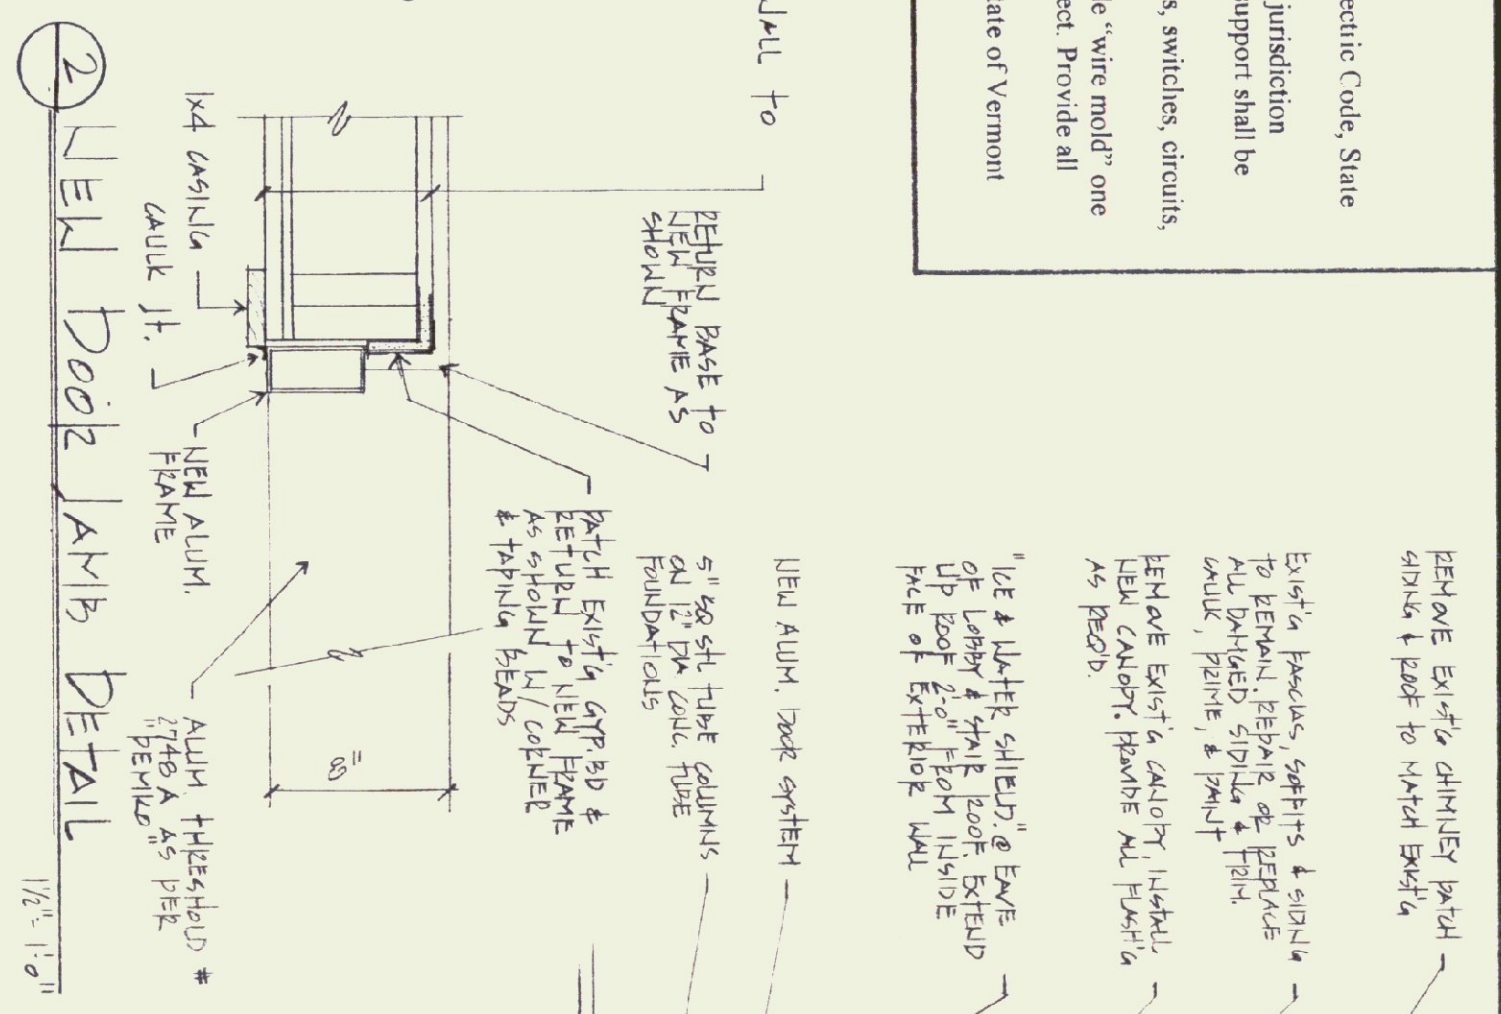 ectric Code, State
jurisdiction
support shall be
s, switches, circuits,
le “wire mold” one
ect. Provide all
tate of Vermont
REMOVE EXIST'G CHIMNEY PATCH
SIDING & ROOF TO MATCH EXIST'G
EXIST'G FASCIAS, SOFFITS & SIDING
TO REMAIN. REPAIR OR REPLACE
ALL DAMGED SIDING & TRIM.
CAULK, PRIME, & PAINT
REMOVE EXIST'G CANOPY, INSTALL
NEW CANOPY. PROVIDE ALL FLASH'G
AS REQ'D.
"ICE & WATER SHIELD." @ EAVE
OF LOBBY & STAIR ROOF. EXTEND
UP ROOF 2'-0" FROM INSIDE
FACE OF EXTERIOR WALL
NEW ALUM. DOOR SYSTEM
5" SQ STL TUBE COLUMNS
ON 12" DIA CONC. TUBE
FOUNDATIONS
WALL TO
RETURN BASE TO
NEW FRAME AS
SHOWN
PATCH EXIST'G GYP. BD &
RETURN TO NEW FRAME
AS SHOWN W/ CORNER
& TAPING BEADS
8"
1x4 CASING
CAULK JT.
NEW ALUM.
FRAME
ALUM. THRESHOLD #
2748 A AS PER
"PEMKO"
2 NEW DOOR JAMB DETAIL
1½"=1'-0"